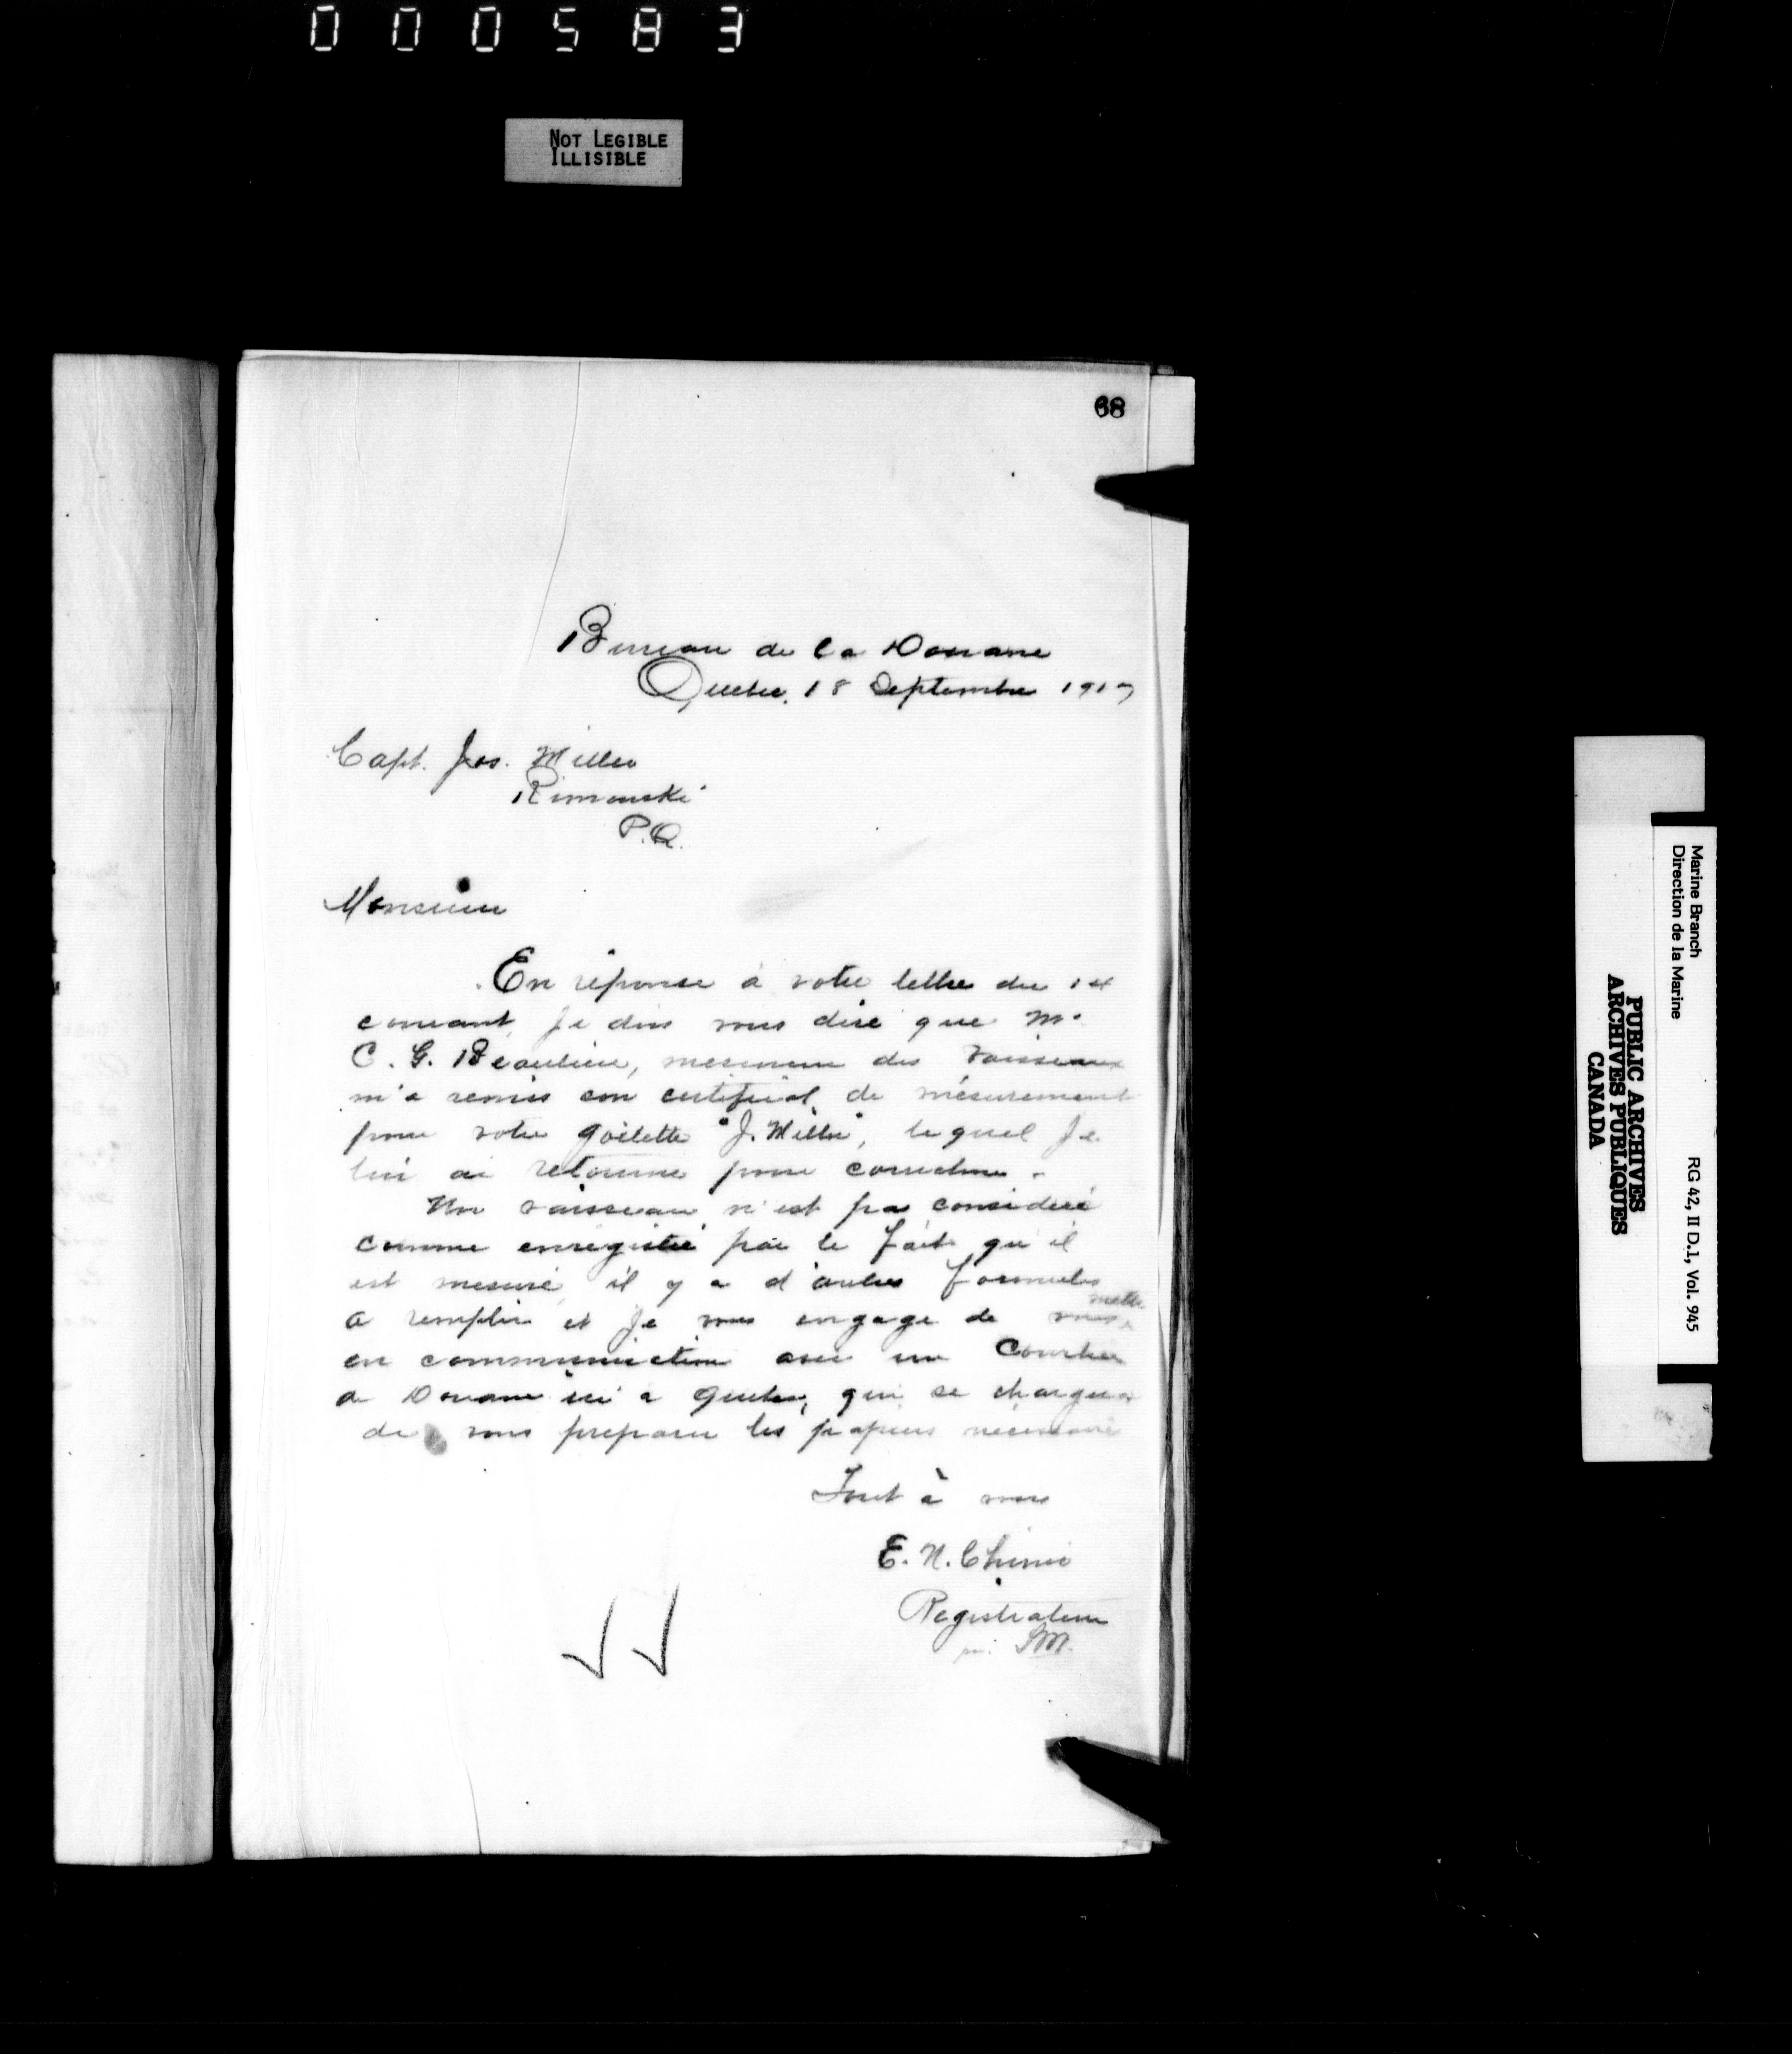 000583
NOT LEGIBLE
ILLISIBLE
68
Bureau de la Douane
Quebec, 18 Septembre 1917
Capt. Jos. Miller
Rimouski
P.Q.
Monsieur
En réponse à votre lettre du 14
courant, Je dois vous dire que Mr
C. G. Beaulieu, mesureur des vaisseaux
m'a remis son certificat de mésurement
pour votre goëlette "J. Miller", lequel Je
lui ai retourné pour correction.
Un vaisseau n'est pas consideré
comme enregistré par le fait qu'il
est mesuré, il y a d'autres formules
a remplir et Je vous engage de vous mettre
en communication avec un Courtier
de Douane ici a Quebec, qui se chargera
de vous preparer les papiers nécessaires
Tout à vous
E. N. Chinic
Registrateur
par SM.
Marine Branch
Direction de la Marine
RG 42, II D.1, Vol. 945
PUBLIC ARCHIVES
ARCHIVES PUBLIQUES
CANADA